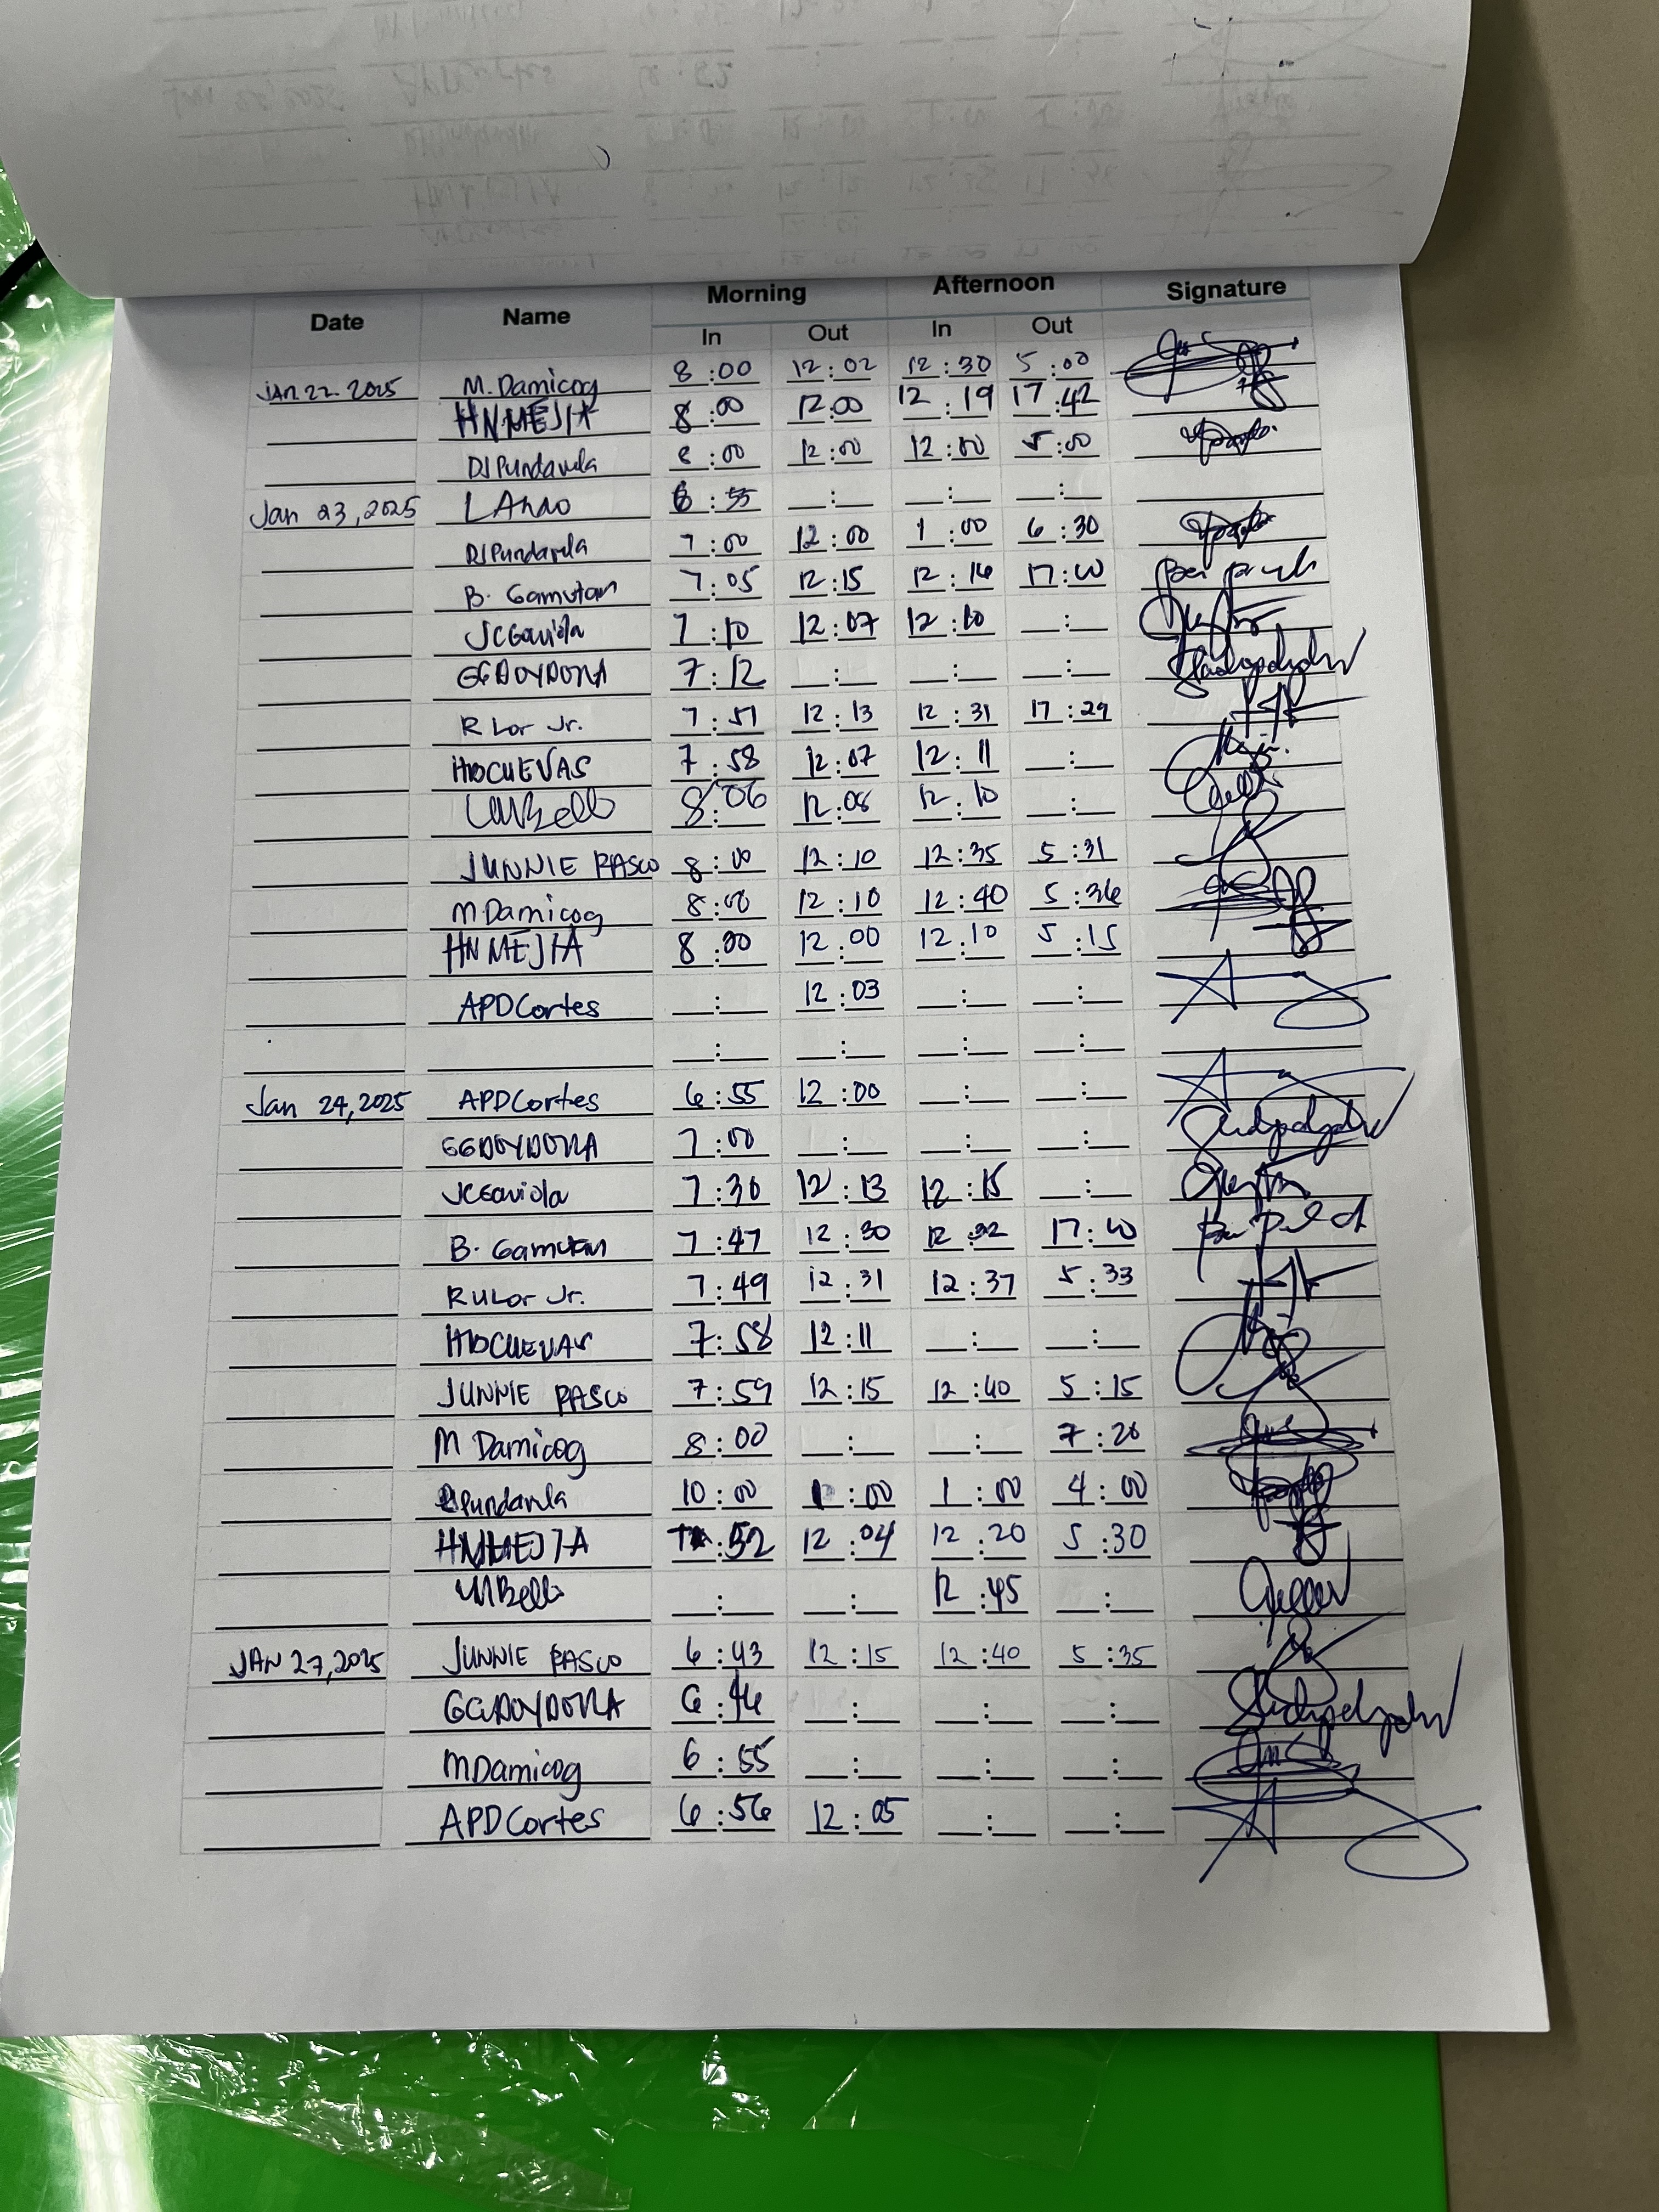 Date Name Morning Afternoon Signature
In Out In Out
JAN 22. 2025 M. Damicog 8:00 12:02 12:30 5:00
HNMEJIA 8:00 12:00 12:19 17:42
DJPundavela 8:00 12:00 12:00 5:00
Jan 23, 2025 LAnao 6:55 __:__ __:__ __:__
DJPundavela 7:00 12:00 1:00 6:30
B. Gamutan 7:05 12:15 12:16 17:40
JCGaviola 7:10 12:07 12:10 __:__
GGDOYDORA 7:12 __:__ __:__ __:__
R Lor Jr. 7:51 12:13 12:31 17:29
HDCUEVAS 7:58 12:07 12:11 __:__
Bello 8:06 12:08 12:10 __:__
JUNNIE RASCO 8:00 12:10 12:35 5:31
M Damicog 8:00 12:10 12:40 5:36
HNMEJIA 8:00 12:00 12:10 5:15
APDCortes __:__ 12:03 __:__ __:__
__:__ __:__ __:__ __:__
Jan 24, 2025 APDCortes 6:55 12:00 __:__ __:__
GGDOYDORA 7:00 __:__ __:__ __:__
JCGaviola 7:30 12:13 12:15 __:__
B. Gamutan 7:47 12:30 12:32 17:40
RULor Jr. 7:49 12:31 12:37 5:33
HDCUEVAS 7:58 12:11 __:__ __:__
JUNNIE RASCO 7:59 12:15 12:40 5:15
M Damicog 8:00 __:__ __:__ 7:20
Pundavela 10:00 1:00 1:00 4:00
HNMEJIA :52 12:04 12:20 5:30
Bello __:__ __:__ 12:45 __:__
JAN 27, 2025 JUNNIE RASCO 6:43 12:15 12:40 5:35
GGDOYDORA 6:46 __:__ __:__ __:__
MDamicog 6:55 __:__ __:__ __:__
APDCortes 6:56 12:05 __:__ __:__